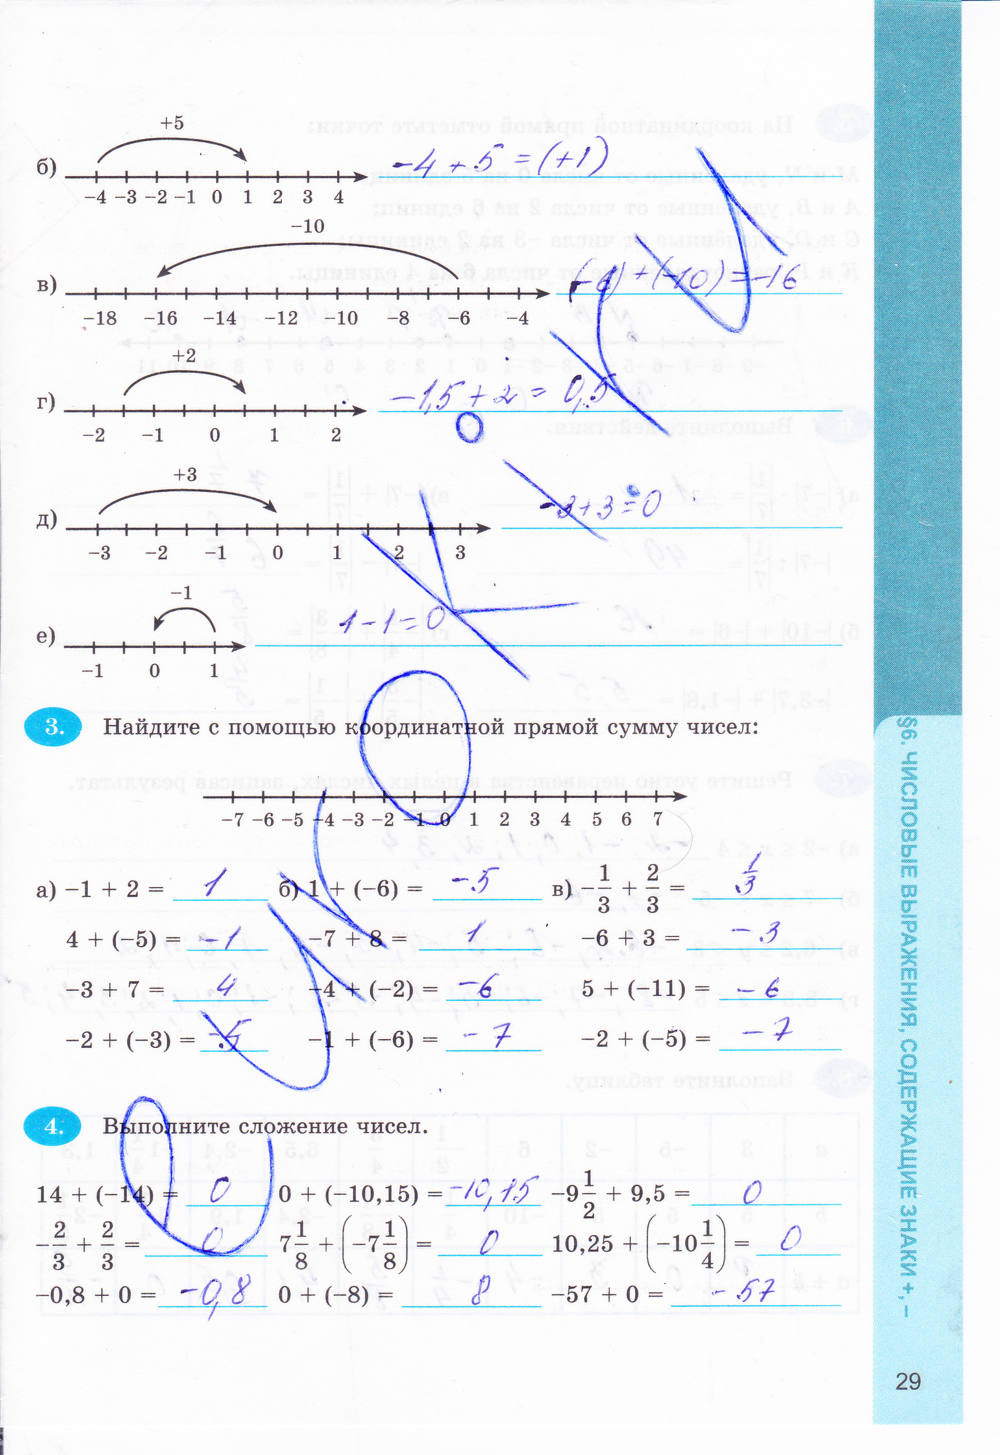 +5
б) -4 + 5 = (+1)
-4 -3 -2 -1 0 1 2 3 4
-10
в) (-6) + (-10) = -16
-18 -16 -14 -12 -10 -8 -6 -4
+2
г) -1,5 + 2 = 0,5
-2 -1 0 1 2
+3
д) -3 + 3 = 0
-3 -2 -1 0 1 2 3
-1
е) 1 - 1 = 0
-1 0 1
3. Найдите с помощью координатной прямой сумму чисел:
-7 -6 -5 -4 -3 -2 -1 0 1 2 3 4 5 6 7
а) -1 + 2 = 1 б) 1 + (-6) = -5 в) -1/3 + 2/3 = 1/3
4 + (-5) = -1 -7 + 8 = 1 -6 + 3 = -3
-3 + 7 = 4 -4 + (-2) = -6 5 + (-11) = -6
-2 + (-3) = -5 -1 + (-6) = -7 -2 + (-5) = -7
4. Выполните сложение чисел.
14 + (-14) = 0 0 + (-10,15) = -10,15 -9 1/2 + 9,5 = 0
-2/3 + 2/3 = 0 7 1/8 + (-7 1/8) = 0 10,25 + (-10 1/4) = 0
-0,8 + 0 = -0,8 0 + (-8) = 8 -57 + 0 = -57
§6. ЧИСЛОВЫЕ ВЫРАЖЕНИЯ, СОДЕРЖАЩИЕ ЗНАКИ +, –
29